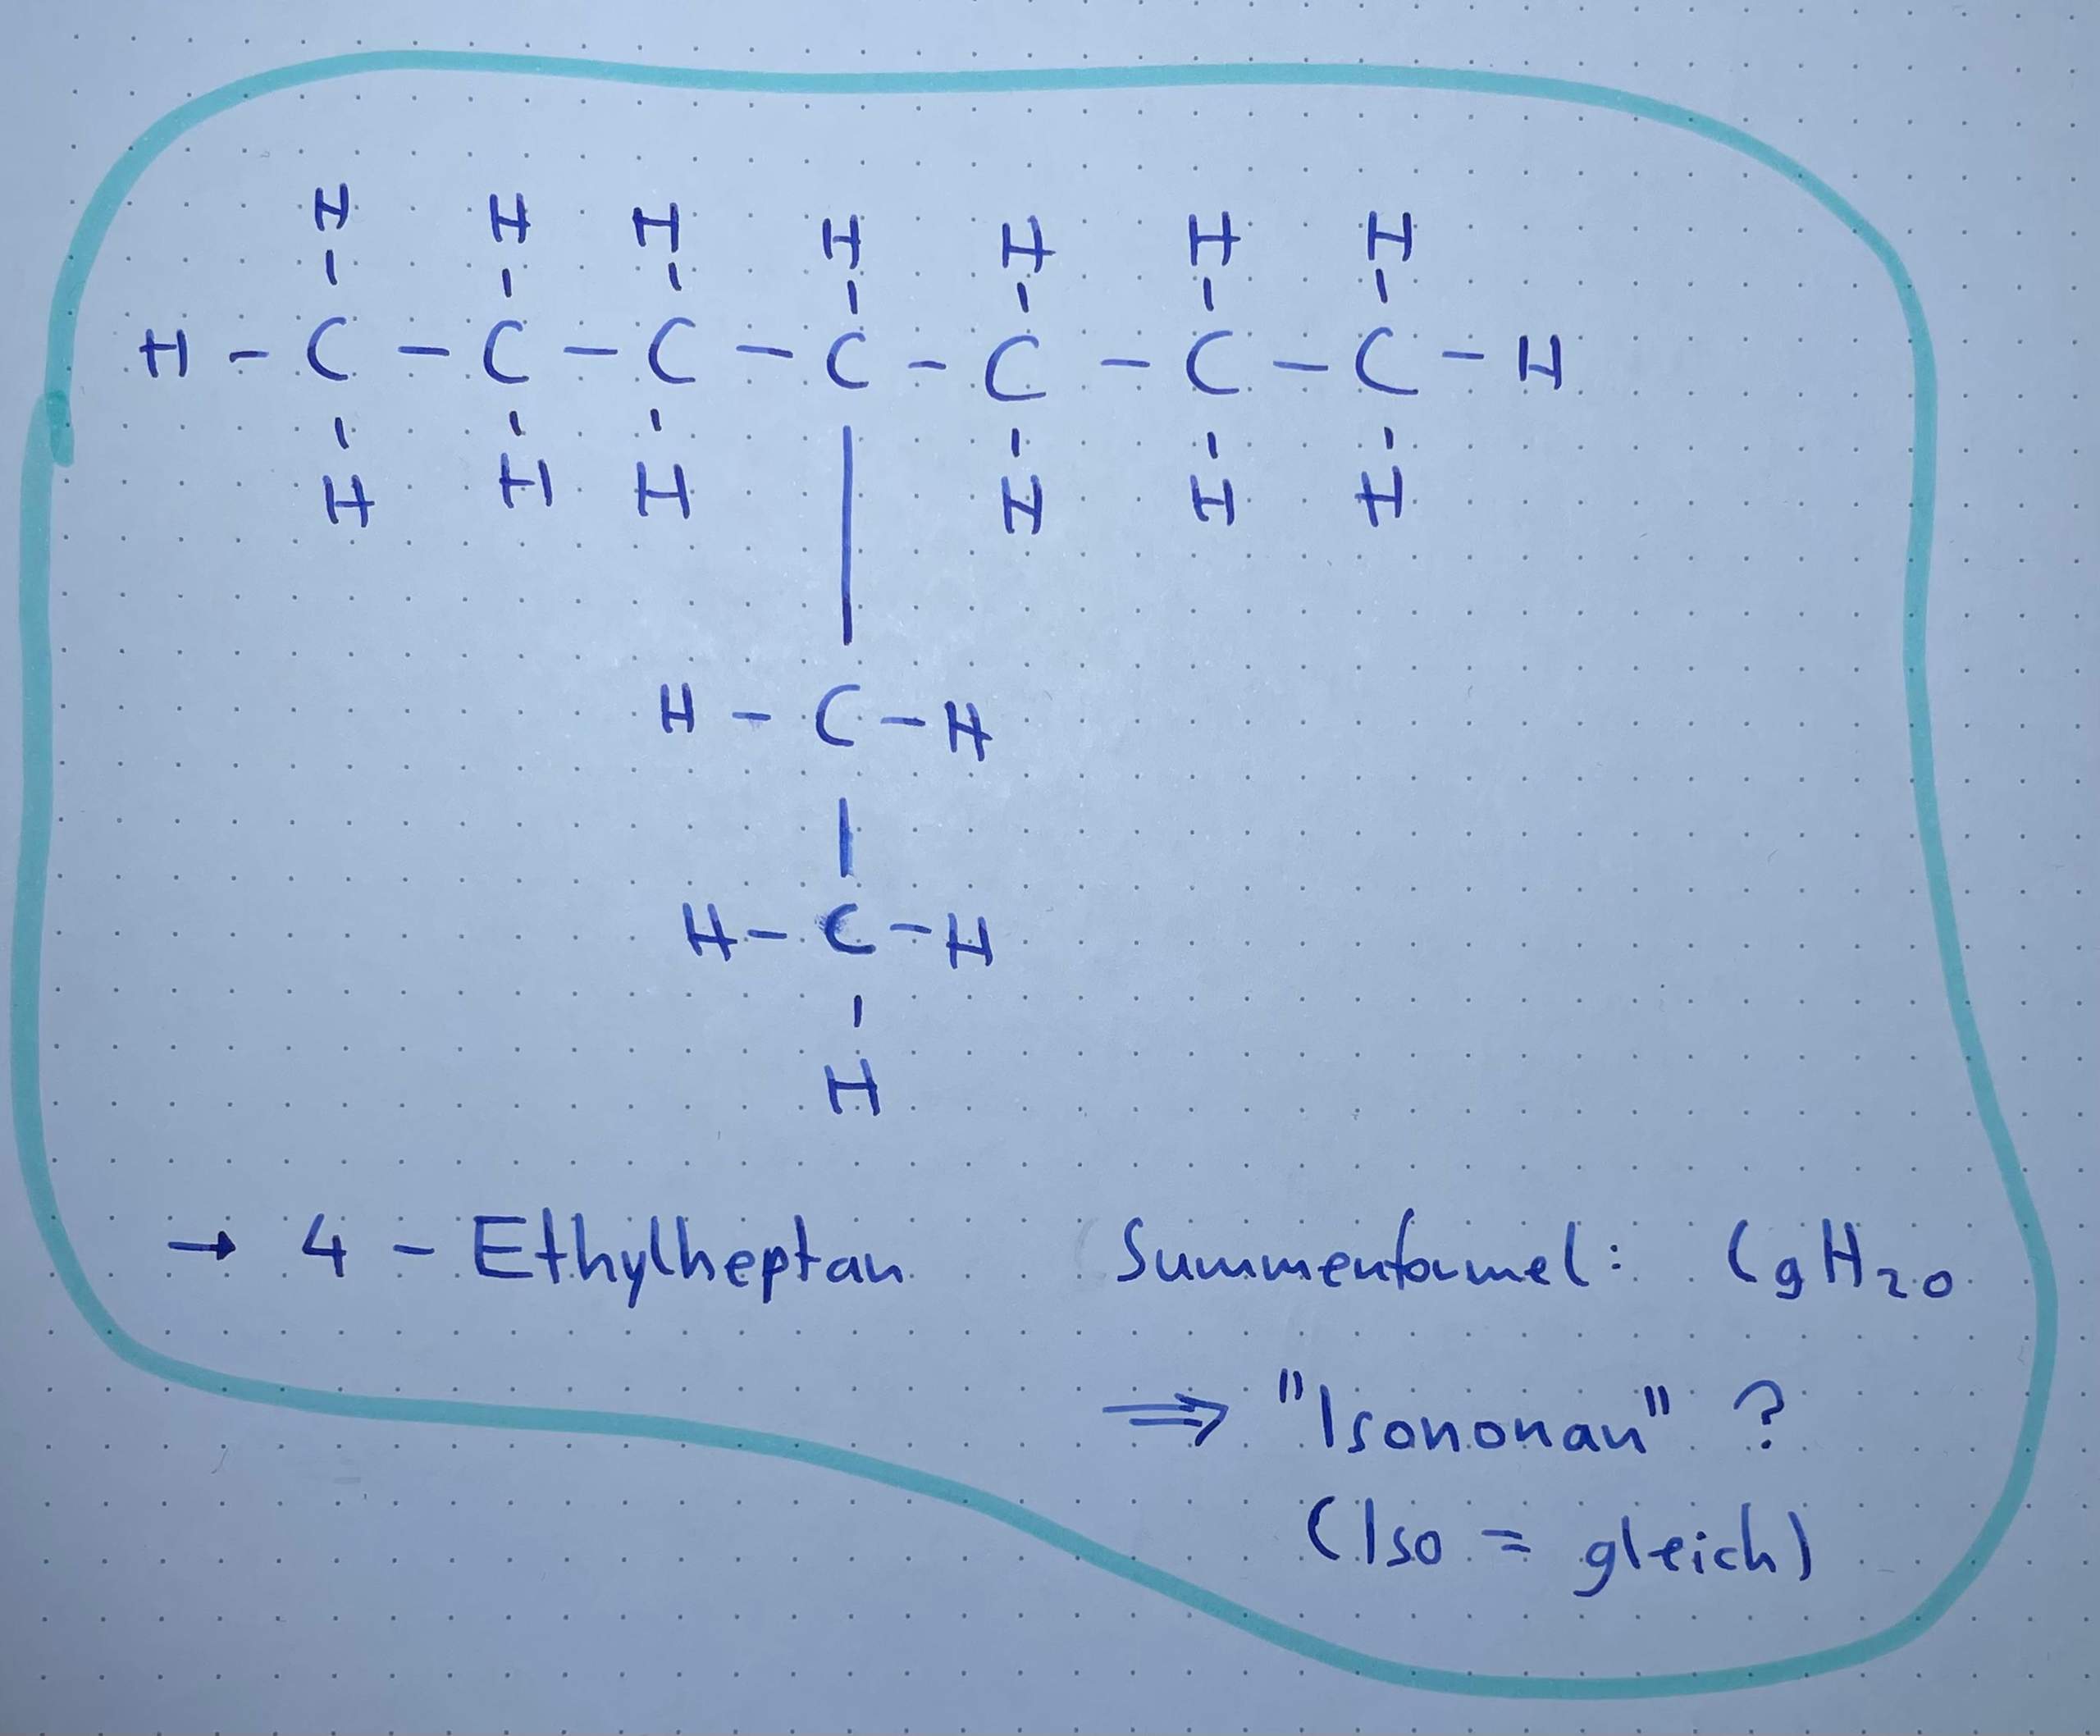 H H H H H H H
H - C - C - C - C - C - C - C - H
H H H H H H
H - C - H
H - C - H
H
→ 4 - Ethylheptan Summenformel: C₉H₂₀
⇒ "Isononan" ?
(Iso = gleich)